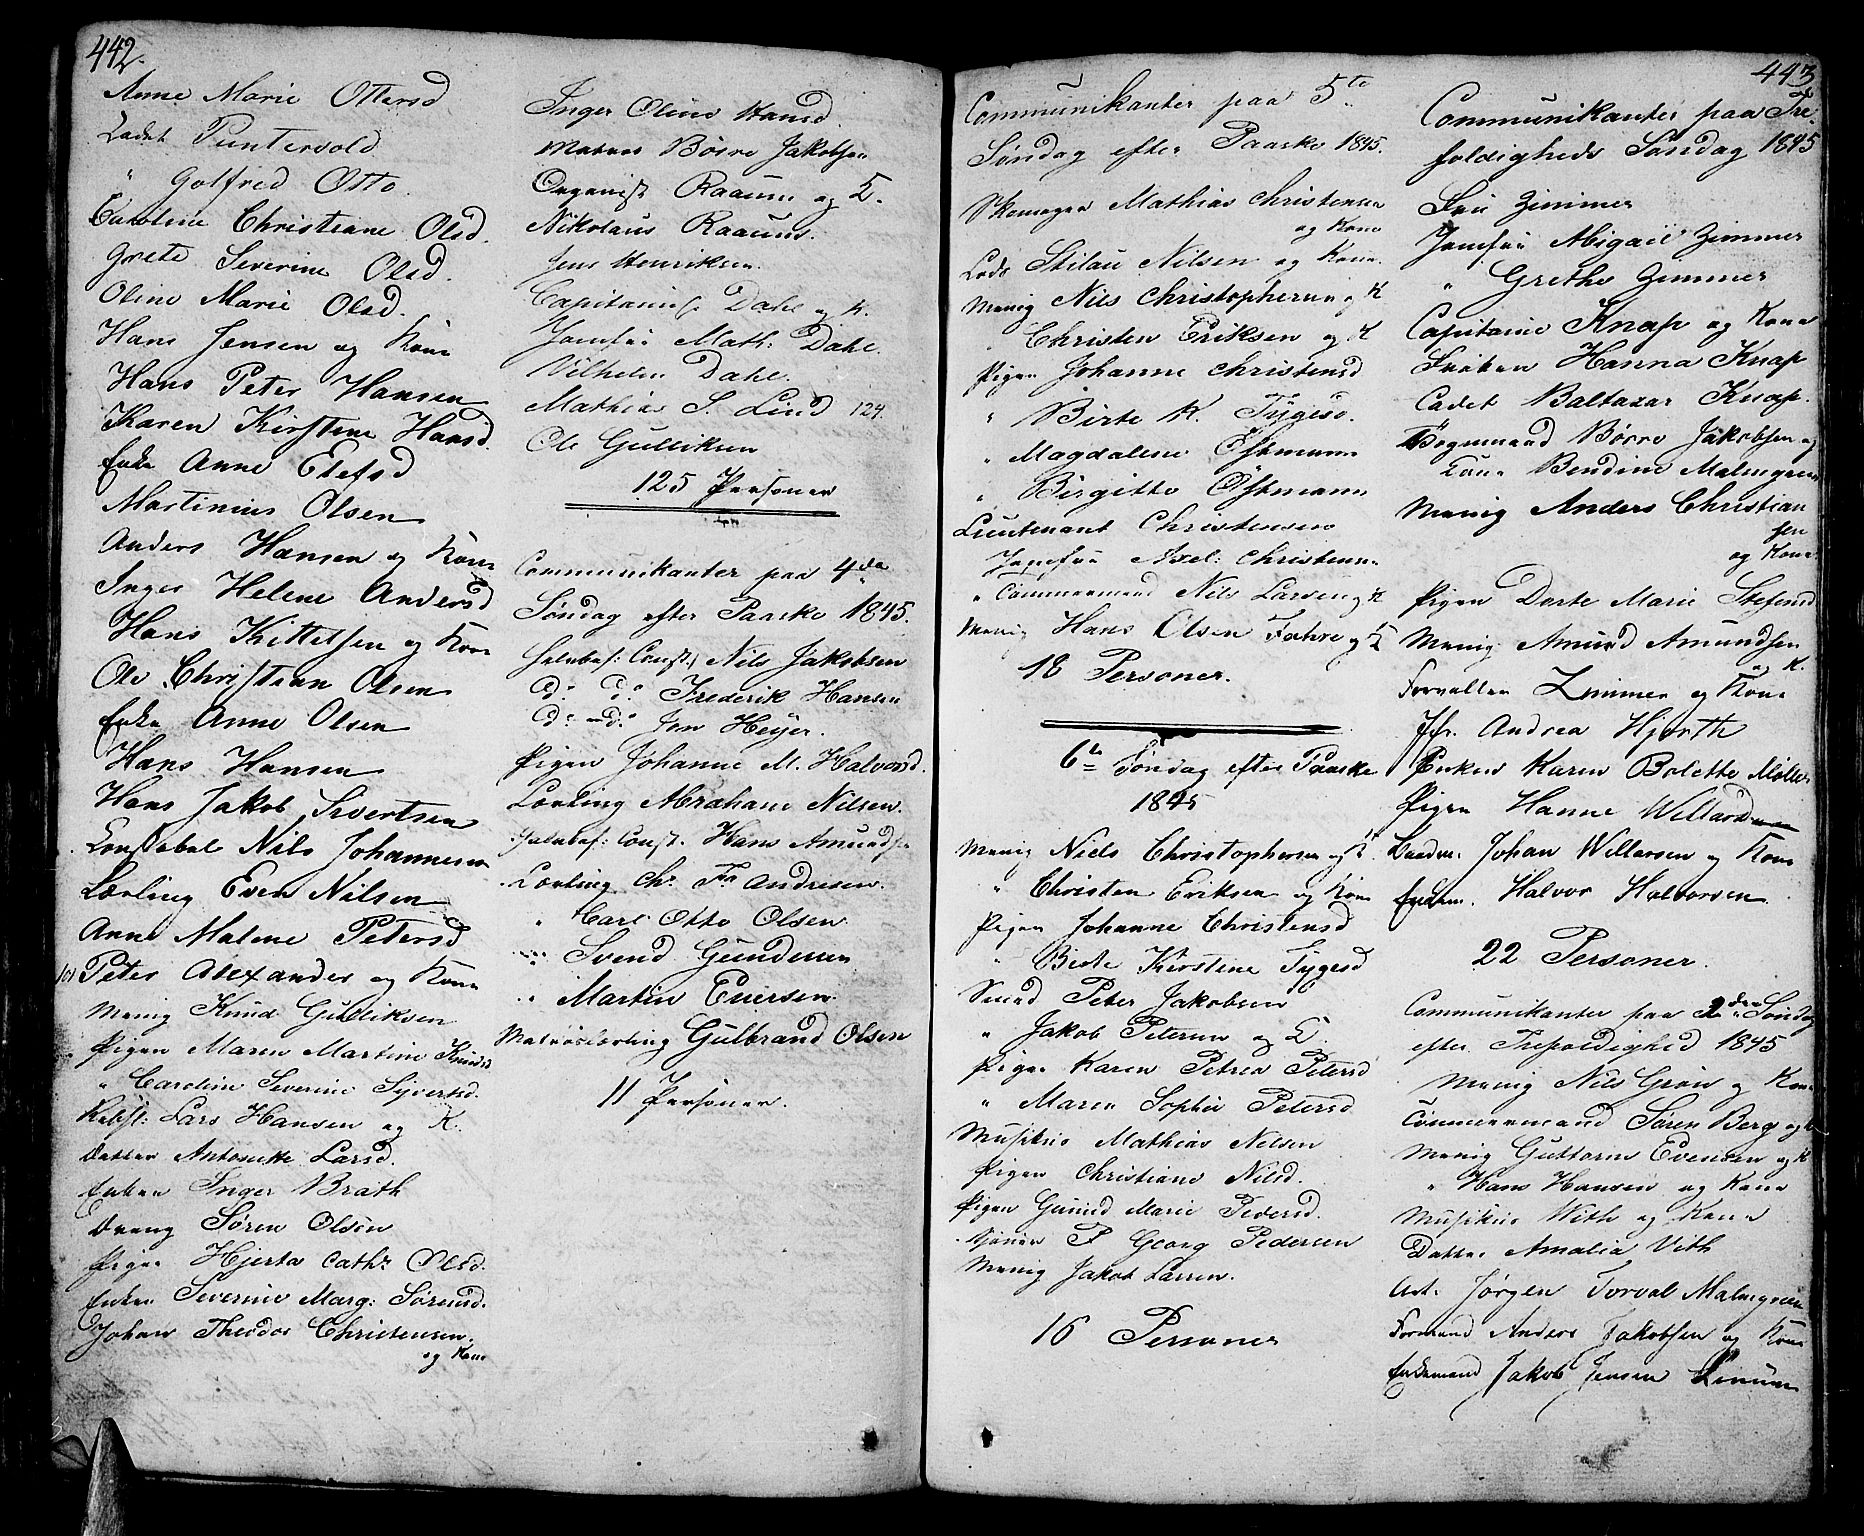 442.
Anne Marie Ottersd
Cadet Puntervold
" Golfred Otto.
Caroline Christiane Olsd.
Grete Severine Olsd.
Oline Marie Olsd.
Hans Jensen og Kone
Hans Peter Hansen
Karen Kirstine Hansd.
Enke Anne Elefsd
Martinius Olsen
Anders Hansen og Kone
Inger Helene Andersd
Hans Kittelsen og Kone
Ole Christian Olsen
Enke Anne Olsen
Hans Hansen
Hans Jakob Sivertsen
Constabel Nils Johannesen
Lærling Even Nilsen
Anne Malene Petersd
Peter Alexander og Kone
Menig Knud Gulliksen
Pigen Maren Martine Knudsd
" Caroline Severine Syversd.
Lars Hansen og K.
Datter Antonette Larsd.
Enken Inger Brath
Dreng Søren Olsen
Pigen Hjerta Cath: Olsd.
Enken Severine Marg: Sørensd.
Johan Theodor Christensen.
og Kone
Inger Oline Hansd.
Matros Børre Jakobsen
Organist Raaum og K.
Nikolaus Raaum.
Jens Henriksen.
Capitain Dahl og K.
Jomfru Math: Dahl.
Vilhelm Dahl.
Mathias S. Lind 124.
Ole Gulliksen
125 Personer
Communikanter paa 4de
Søndag efter Paaske 1845.
Const: Nils Jakobsen
do do Frederik Hansen
do do Jon Heyer.
Pigen Johanne M. Halvorsd.
Lærling Abraham Nilsen.
Const. Hans Amundsen
Lærling Chr. Fr Andresen.
" Carl Otto Olsen
" Svend Gundersen
" Martin Eversen.
Matroslærling Gulbrand Olsen
11 Personer.
443
Communikanter paa 5te
Søndag efter Paaske 1845.
Skomager Mathias Christensen
og Kone
Lods Stilau Nilsen og Kone.
Menig Nils Christophersen og K
" Christen Eriksen og K
Pigen Johanne Christensd
" Birte K. Tygesd.
" Magdalene Østmann
" Birgitte Østmann
Lieutenant Christensen
Jomfru Axel: Christensen
" Tømmermand Nils Larsen og K
Menig Hans Olsen Fahre og K
18 Personer.
6te Søndag efter Paaske
1845
Menig Niels Christophersen og K.
" Christen Eriksen og Kone
Pigen Johanne Christensd
" Birte Kirstine Tygesd
Smed Peter Jakobsen
" Jakob Petersen og K.
Pigen Karen Petrea Petersd
" Maren Sophie Petersd
Musikus Mathias Nilsen
Pigen Christiane Nilsd.
Pigen Gunild Marie Pedersd.
P Georg Pedersen
Menig Jakob Larsen.
16 Personer
Communikanter paa Tre-
foldigheds Søndag 1845
Fru Zimmer
Jomfru Abigail Zimmer
" Grethe Zimmer
Capitaine Knap og Kone
Frøken Hanna Knap
Cadet Baltazar Knap.
Bøgemand Børre Jakobsen og
Kone Bendine Malmgreen
Menig Anders Christian
sen
og Kone
Pigen Dorte Marie Stefensd
Menig Amund Amundsen
og K.
Forvalter Zimmer og Kone
Jfr. Andrea Hjorth
Enken Karen Bolette Møller
Pigen Hanne Willard
Johan Willarsen og Kone
Enkem. Halvor Halvorsen.
22 Personer.
Communikanter paa 2den Søndag
efter Trefoldighed 1845
Menig Nils Grøn og Kone
Tømmermand Søren Berg og K
Menig Guttorm Evensen og K
" Hans Hansen og Kone
Musikus With og Kone
Datter Amalia Vith
Art. Jørgen Torval Malmgreen
Formand Anders Jakobsen og Kone
Enkemand Jakob Jensen Linum